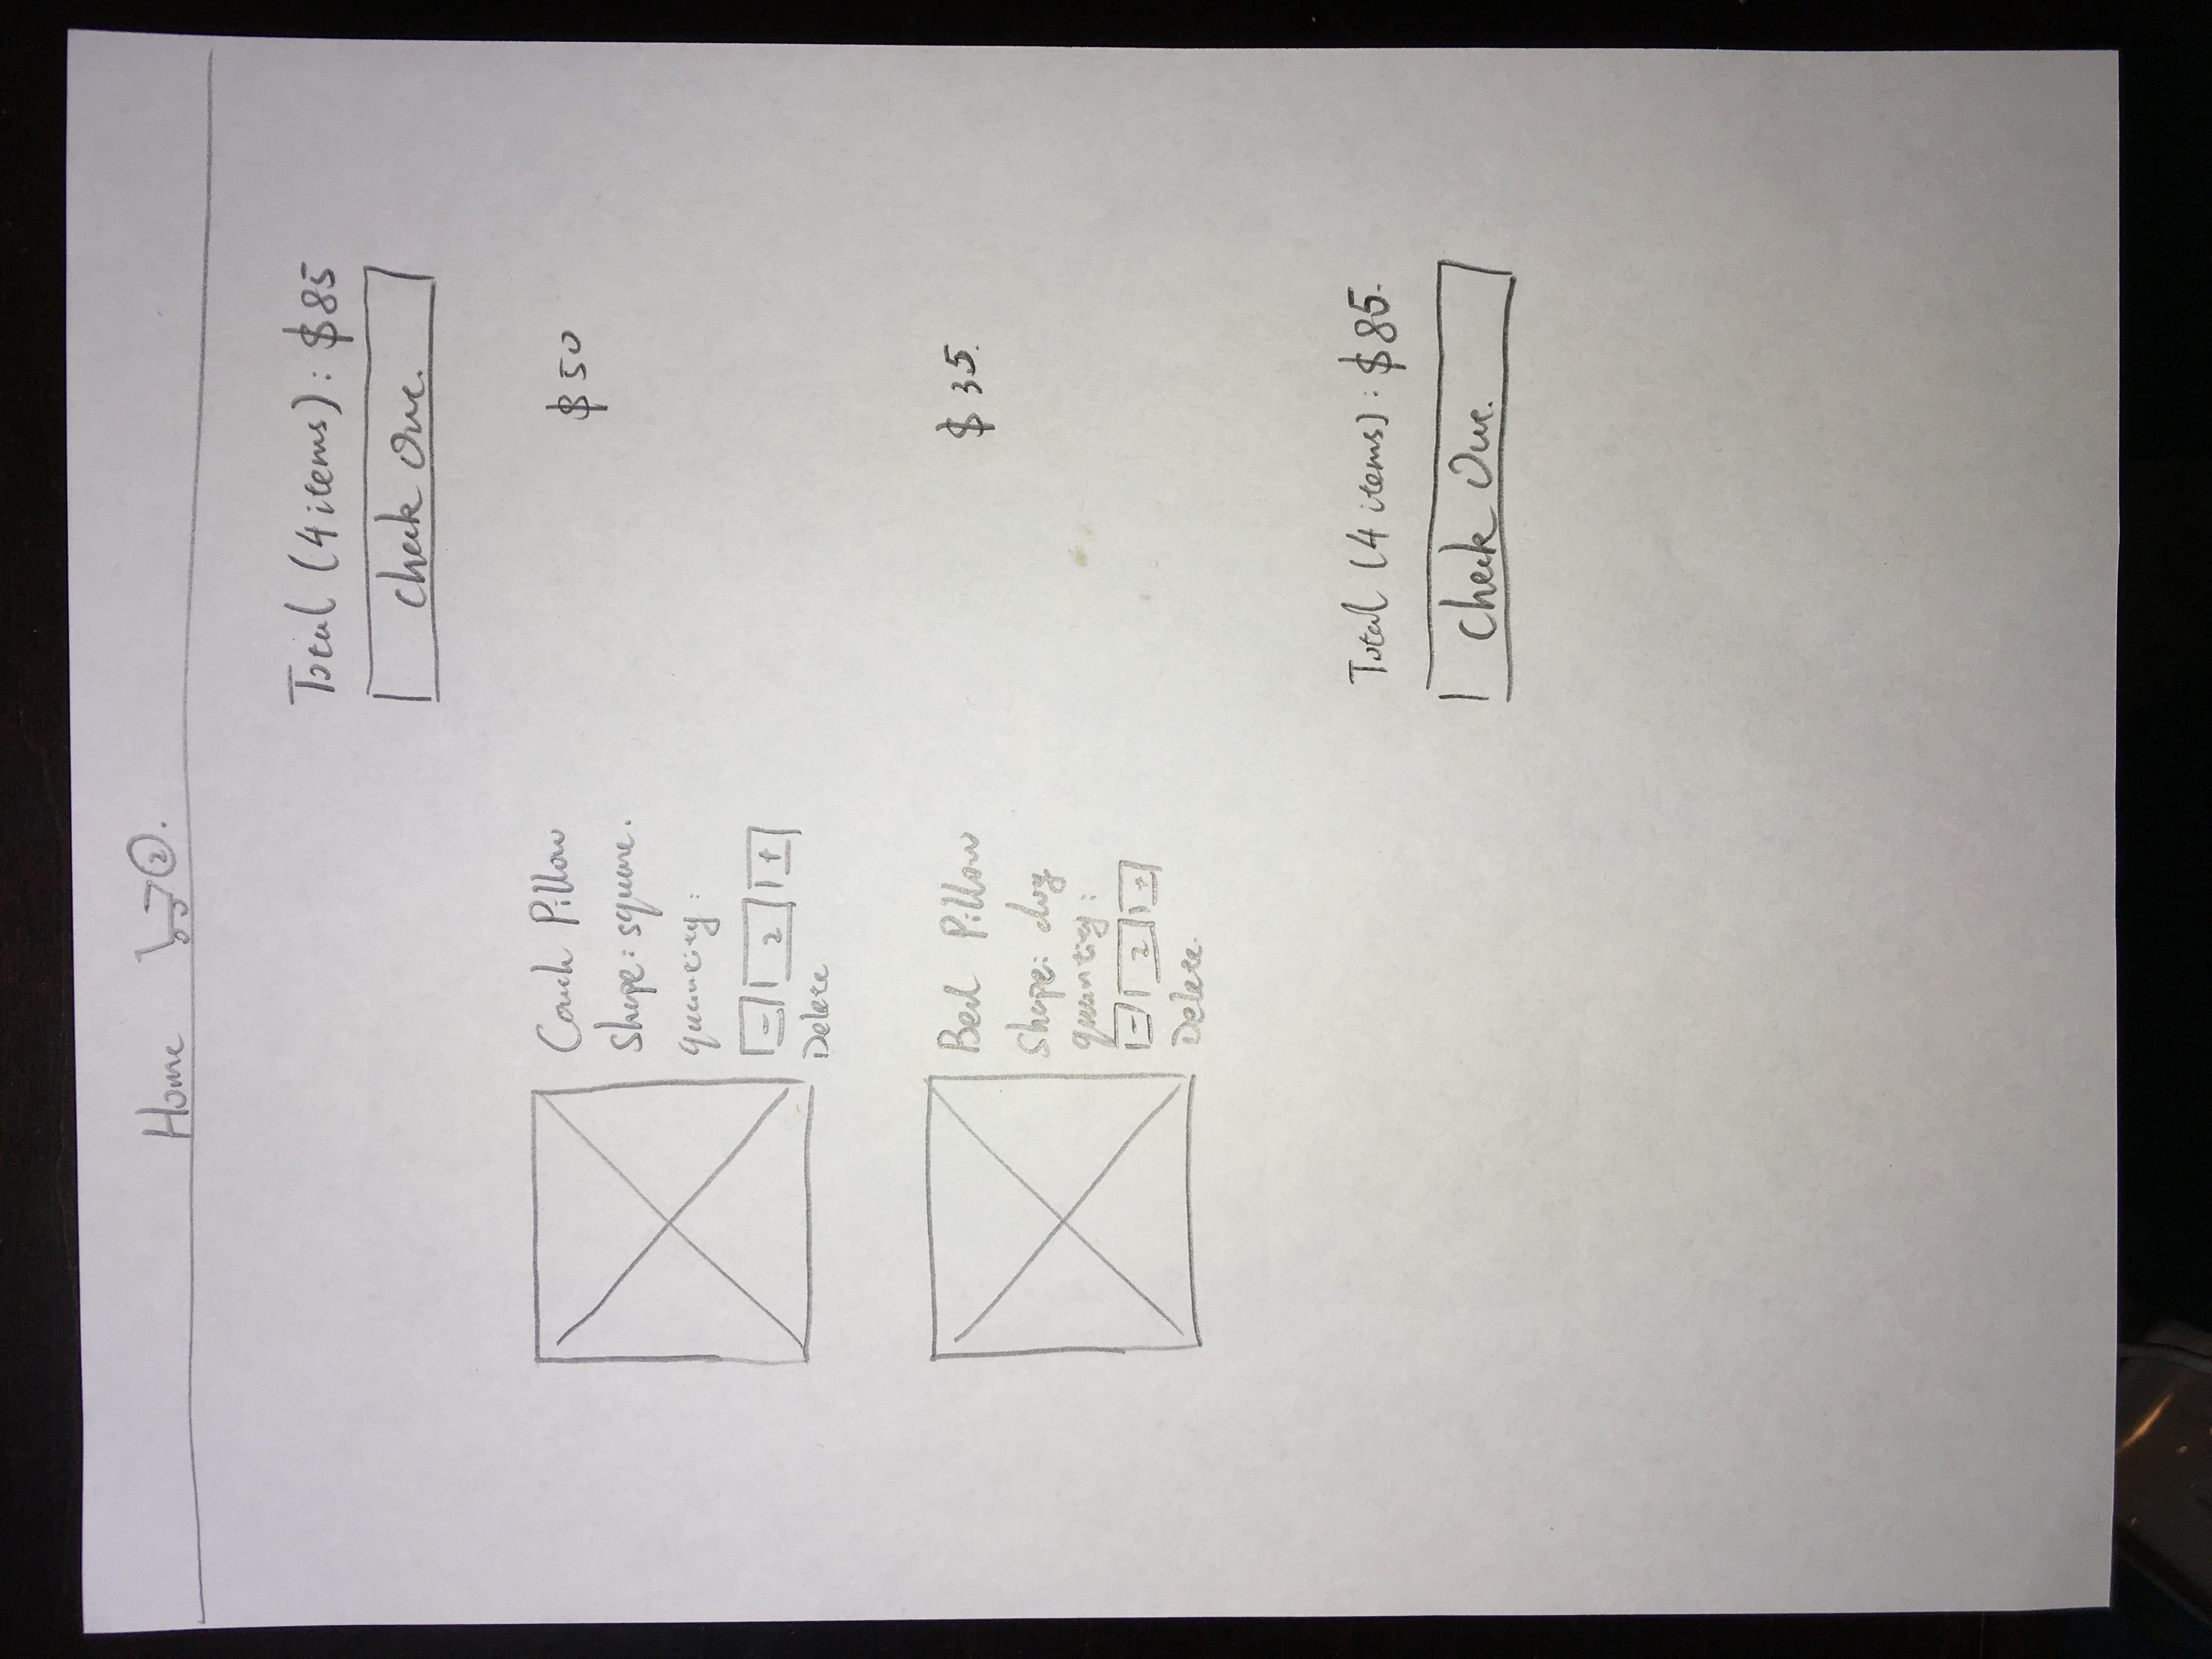 Home 2
Total (4 items): $85
Check Out.
Couch Pillow $50
Shape: square.
quantity:
- 2 +
Delete
Bed Pillow $35.
Shape: dog
quantity:
- 2 +
Delete.
Total (4 items): $85.
Check Out.